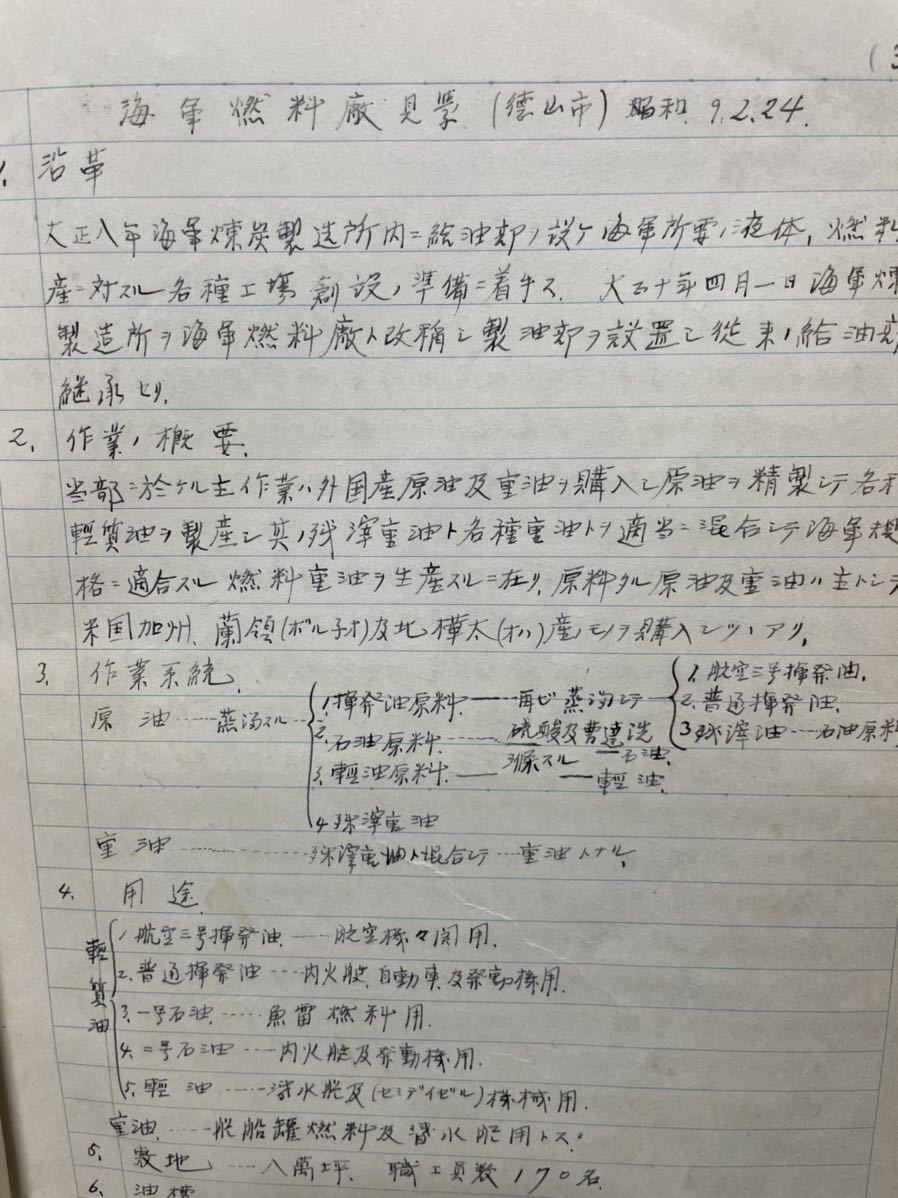 (3
海軍燃料廠見學 (德山市) 昭和 9.2.24.
1. 沿革
大正八年海軍煉炭製造所内ニ給油部ヲ設ケ海軍所要ノ液体、燃料
産ニ対スル各種工場創設ノ準備ニ着手ス. 大正十年四月一日海軍煉
製造所ヲ海軍燃料廠ト改稱シ製油部ヲ設置シ從来ノ給油部
継承セリ.
2. 作業ノ概要.
当部ニ於ケル主作業ハ外国産原油及重油ヲ購入シ原油ヲ精製シテ各種
輕質油ヲ製産シ其ノ残滓重油ト各種重油トヲ適当ニ混合シテ海軍規
格ニ適合スル燃料重油ヲ生産スルニ在リ. 原料タル原油及重油ハ主トシテ
米国加州、蘭領(ボルネオ)及北樺太(オハ)産ノモノヲ購入シツヽアリ.
3. 作業系統.
原油……蒸溜スル
1. 揮発油原料——再ビ蒸溜シテ
1. 航空三号揮発油.
2. 普通揮発油.
3. 残滓油…石油原料
2. 石油原料……硫酸及曹達洗滌スル—石油.
3. 輕油原料———輕油.
4. 残滓重油
重油……………残滓重油ト混合シテ…重油トナル.
4. 用途.
輕質油
1. 航空三号揮発油……航空機々関用.
2. 普通揮発油…内火艇、自動車及発動機用.
3. 一号石油……魚雷燃料用.
4. 二号石油……内火艇及発動機用.
5. 輕油……潜水艇及(セミデイゼル)機械用.
重油……艦船罐燃料及潜水艇用トス.
5. 敷地……八萬坪. 職工員数 170名.
6. 油槽